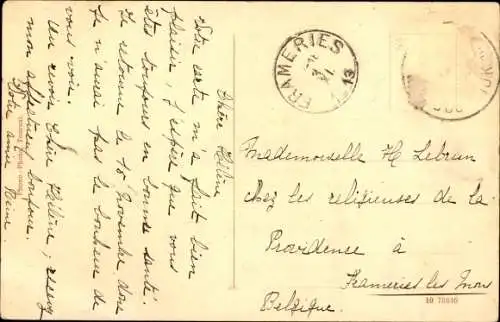 Chère Hélène
Votre carte m'a fait bien
plaisir, j'espère que vous
êtes toujours en bonne santé.
Je retourne le 10 novembre donc
je n'aurai pas le bonheur de
vous voir.
Au revoir Chère Hélène, recevez
mon affectueux bonjour.
Votre amie Reine.
FRAMERIES
13
Mademoiselle H Lebrun
Chez les religieuses de la
Providence à
Frameries lez Mons
Belgique.
10 78640